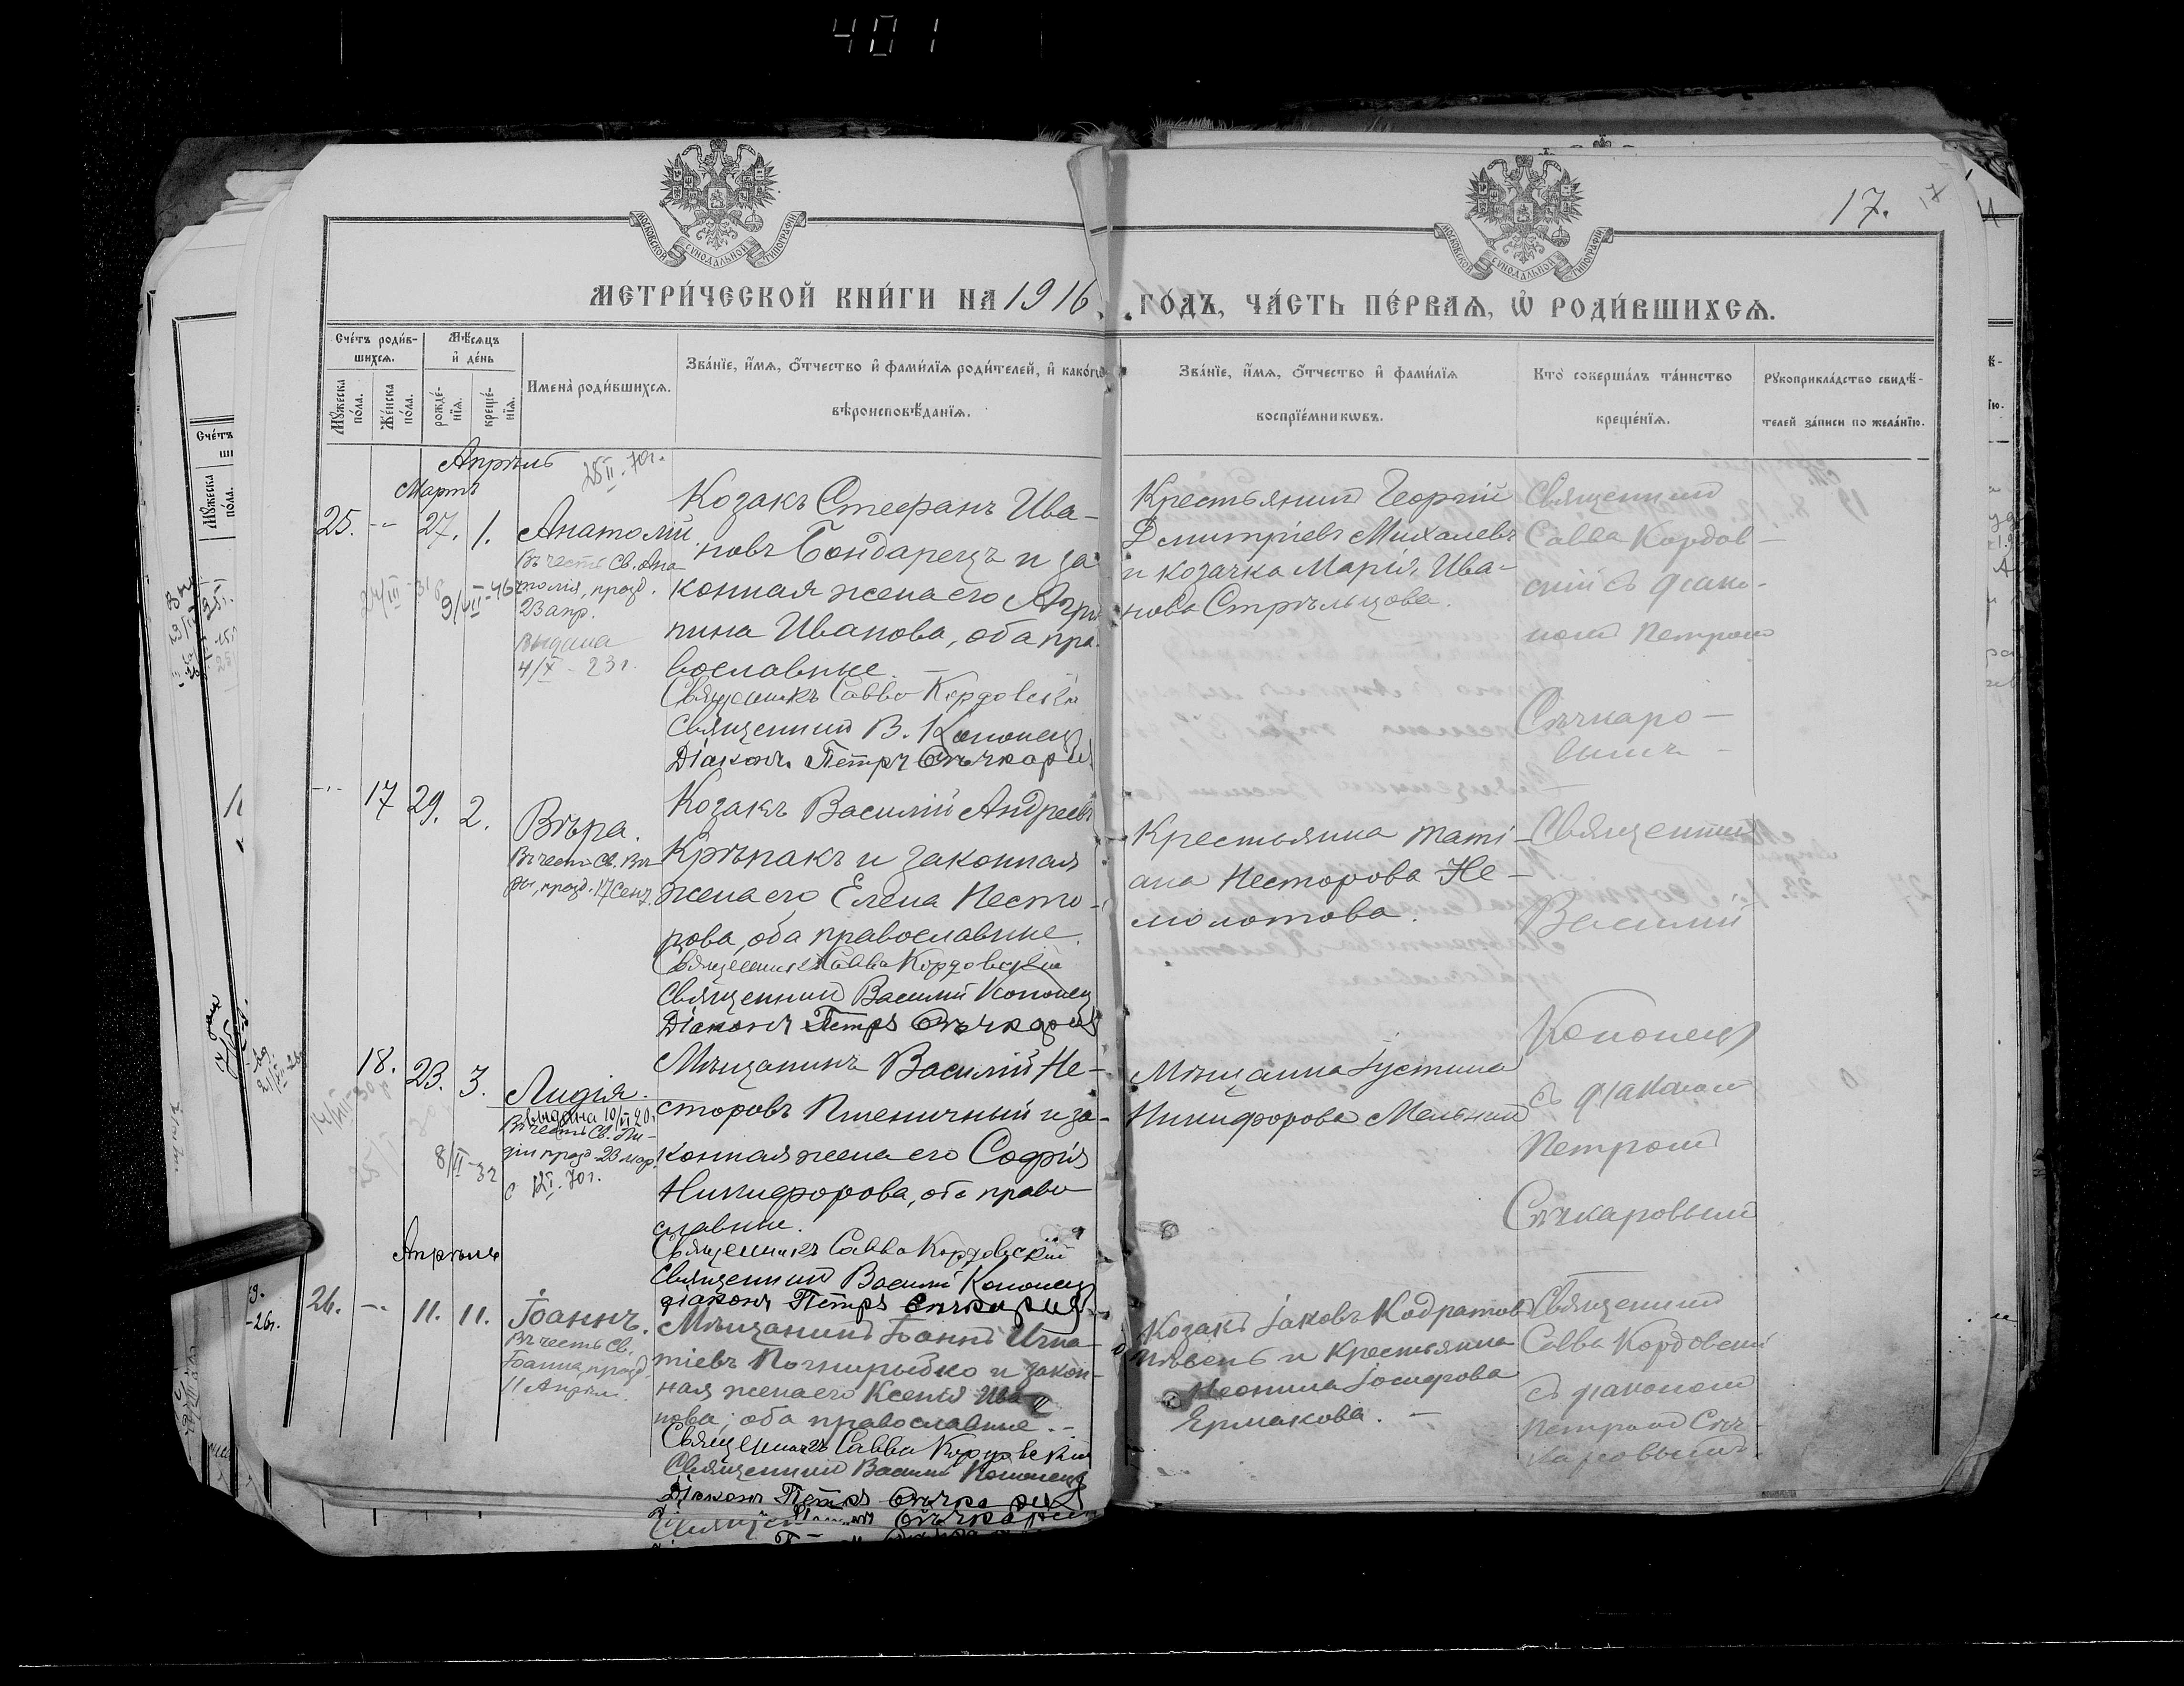 401
МОСКОВСКОЙ СѴНОДАЛЬНОЙ ТИПОГРАФІИ
МОСКОВСКОЙ СѴНОДАЛЬНОЙ ТИПОГРАФІИ
17.
17
МЕТРИ́ЧЕСКОЙ КНИ́ГИ НА 1916
ГО́ДЪ, ЧА́СТЬ ПЕ́РВАѦ, Ѽ РОДИ́ВШИХСѦ.
Сче́тъ роди́в-
шихсѧ.
Мѣ́сѧцъ
и҆ де́нь
Мꙋ́жеска
по́ла.
Же́нска
по́ла.
рожде́-
нїѧ.
креще́-
нїѧ.
И҆мена̀ роди́вшихсѧ.
Зва́нїе, и҆́мѧ, ѻ҆́тчество и҆ фами́лїѧ роди́телей, и҆ како́гѡ
вѣроисповѣ́данїѧ.
Зва́нїе, и҆́мѧ, ѻ҆́тчество и҆ фами́лїѧ
воспрїе́мникѡвъ.
Кто̀ соверша́лъ та́инство
креще́нїѧ.
Рꙋкоприкла́дство свидѣ́-
телей за́писи по жела́нїю.
Апрѣль
Мартъ
25 II. 70 г.
25. -"- 27. 1. Анатолій
Въ честь Св. Ана
толія, празд.
23 апр.
Выдана
4/X - 23 г.
Козакъ Стефанъ Ива-
новъ Бондарецъ и за
конная жена его Агри
пина Иванова, оба пра-
вославные.
Священникъ Савва Кордовскій
Священникъ В. Кононец
Діаконъ Петръ Сѣчкарев
Крестьянинъ Георгій
Дмитріевъ Михалевъ
и козачка Марія Ива-
нова Стрѣльцова.
Священникъ
Савва Кордов-
скій съ діако-
номъ Петромъ
Сѣчкаро-
вымъ
-"- 17 29. 2. Вѣра.
Въ честь Св. Вѣ-
ры, празд. 17 Сент.
Козакъ Василій Андреевъ
Крѣпакъ и законная
жена его Елена Несто-
рова, оба православные.
Священникъ Савва Кордовскій
Священникъ Василій Кононец
Діаконъ Петръ Сѣчкарев
Крестьянка Таті-
ана Несторова Не-
молотова.
Священникъ
Василій
Кононецъ
съ діакономъ
Петромъ
Сѣчкаровымъ
18. 23. 3. Лидія.
выдана 10/VI 20 г.
Въ честь Св. Ли-
діи празд. 23 мар.
8/II-32
Мѣщанинъ Василій Не-
сторовъ Пшеничный и за-
конная жена его Софія
Никифорова, оба право
славные.
Священникъ Савва Кордовскій
Священникъ Василій Кононец
діаконъ Петръ Сѣчкарев
Мѣщанка Іустина
Никифорова Мельник
Апрѣль
26. -"- 11. 11. Іоаннъ.
Въ честь Св.
Іоанна, празд.
11 Апрѣля
Мѣщанинъ Іоаннъ Игна-
тіевъ и закон-
ная жена его Ксенія Ива
нова, оба православные.-
Священникъ Савва Кордовскій
Священникъ Василій Кононец
Діаконъ Петръ Сѣчкарев
Козакъ Іаковъ Кодратов
Пивень и Крестьянка
Неонила Іосифова
Ермакова. -
Священникъ
Савва Кордовскій
съ діакономъ
Петромъ Сѣч-
каровымъ.